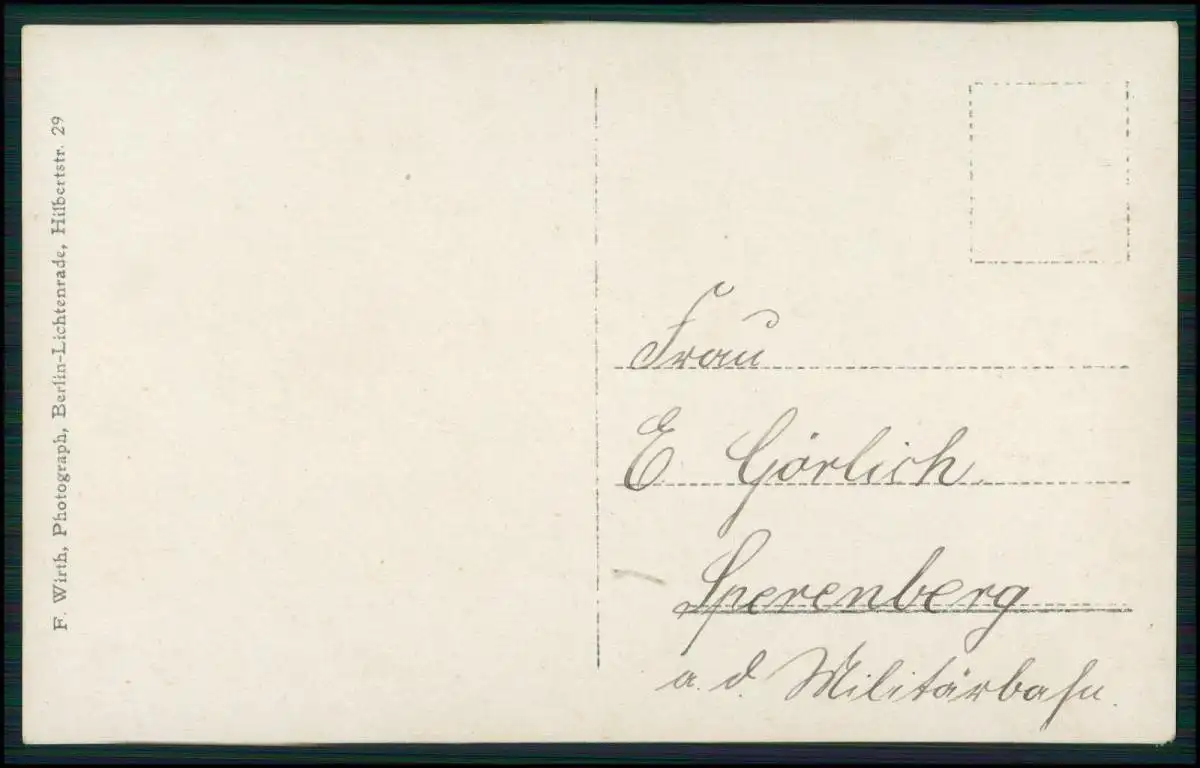 F. Wirth, Photograph, Berlin-Lichtenrade, Hilbertstr. 29
Frau
E. Görlich
Sperenberg
a. d. Militärbahn.